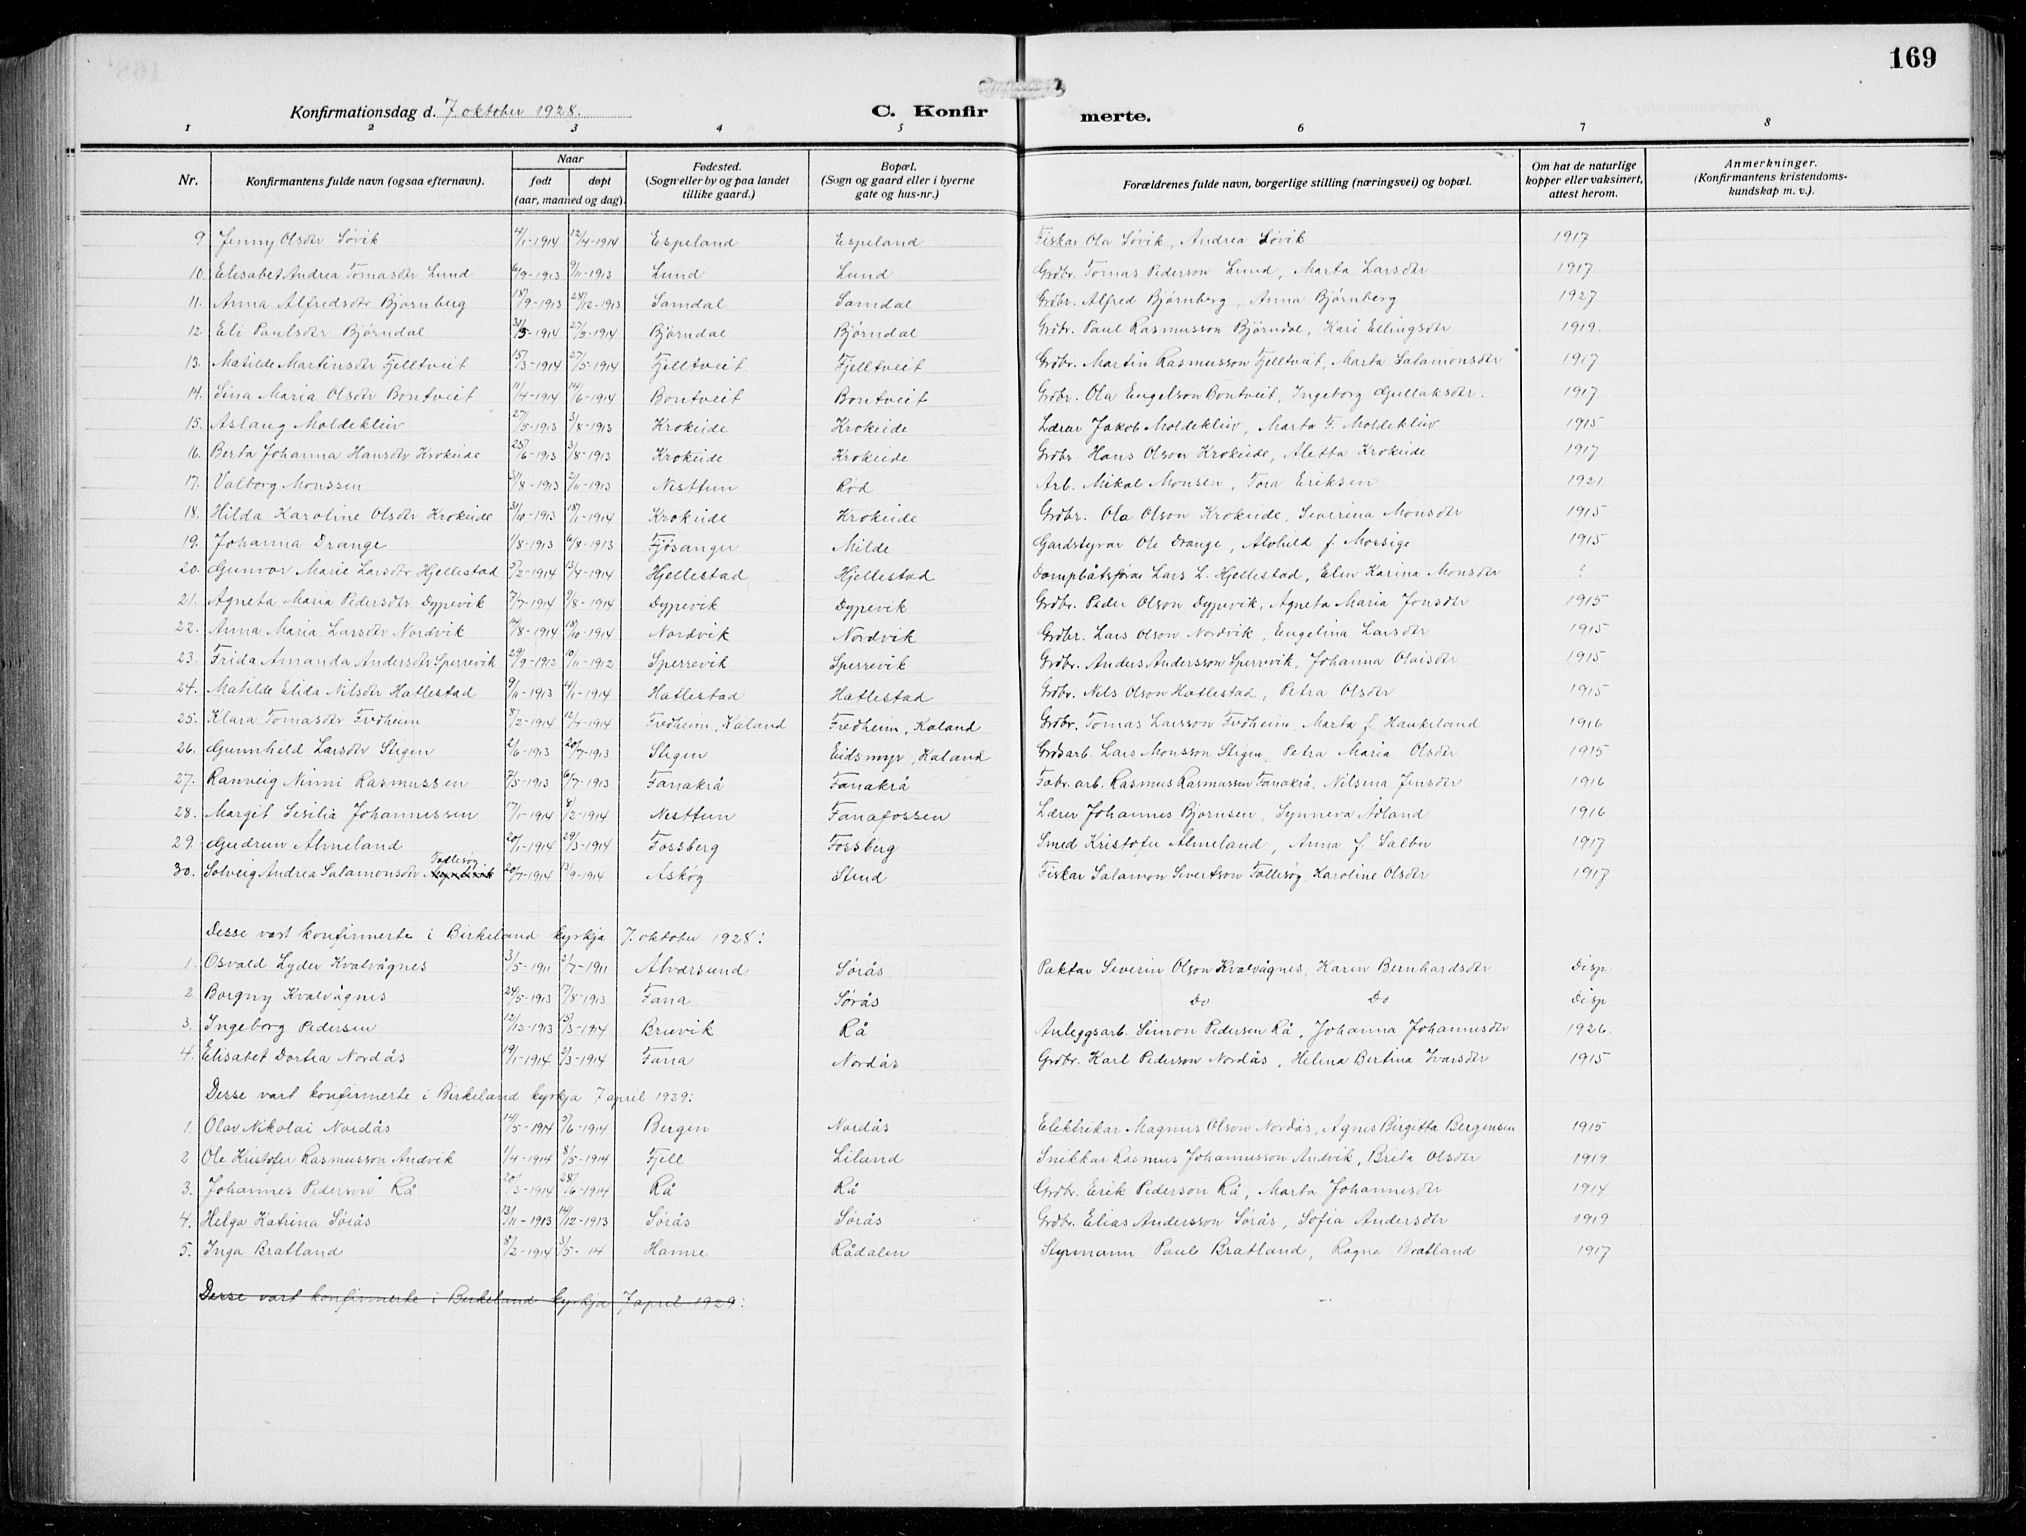 169
Konfirmationsdag d. 7. oktober 1928.
C. Konfirmerte.
1 2 3 4 5 6 7 8
Nr. Konfirmantens fulde navn (ogsaa efternavn). Naar født døpt (aar, maaned og dag). Fødested. (Sogn eller by og paa landet tillike gaard.) Bopæl. (Sogn og gaard eller i byerne gate og hus-nr.) Forældrenes fulde navn, borgerlige stilling (næringsvei) og bopæl. Om hat de naturlige kopper eller vaksinert, attest herom. Anmerkninger. (Konfirmantens kristendomskundskap m. v.).
9 Jenny Olsdtr Søvik 4/1-1914 12/4-1914 Espeland Espeland Fiskar Ola Søvik, Andrea Søvik 1917
10. Elisabet Andrea Tomasdtr Lund 6/9-1913 9/11-1913 Lund Lund Grdbr. Tomas Pederson Lund, Marta Larsdtr 1917
11. Anna Alfredsdtr Bjørnberg 18/9-1913 28/12-1913 Samdal Samdal Grdbr. Alfred Bjørnberg, Anna Bjørnberg 1927
12. Eli Paulsdtr Bjørndal 31/3-1914 27/5-1914 Bjørndal Bjørndal Grdbr. Paul Rasmusson Bjørndal, Kari Ellingsdtr 1919.
13. Matilde Martinsdtr Fjelltveit 15/3-1914 27/5-1914 Fjelltveit Fjelltveit Grdbr. Martin Rasmusson Fjelltveit, Marta Salamonsdtr 1917
14. Sina Maria Olsdtr Bontveit 11/4-1914 14/6-1914 Bontveit Bontveit Grdbr. Ola Engelson Bontveit, Ingeborg Gullaksdtr. 1917
15. Aslaug Moldekleiv 27/5-1913 3/8-1913 Krokeide Krokeide Lærar Jakob Moldekleiv, Marta F. Moldekleiv 1915
16. Berta Johanna Hansdtr Krokeide 25/6-1913 3/8-1913 Krokeide Krokeide Grdbr. Hans Olson Krokeide, Aletta Krokeide 1917
17. Valborg Monssen 31/8-1913 2/11-1913 Nesttun Rød Arb. Mikal Monsen, Tora Eriksen 1921
18. Hilda Karoline Olsdtr Krokeide 31/10-1913 18/1-1914 Krokeide Krokeide Grdbr. Ola Olson Krokeide, Severina Monsdtr 1915
19. Johanna Drange 1/8-1913 6/8-1913 Fjøsanger Milde Gardstyrar Ole Drange, Alvhild f. Morsige 1915
20. Gunvor Marie Larsdtr Hjellestad 5/2-1914 13/4-1914 Hjellestad Hjellestad Dampbåtsførar Lars L. Hjellestad, Elen Karina Monsdtr ?
21. Agneta Maria Pedersdtr Dypevik 7/7-1914 9/8-1914 Dypevik Dypevik Grdbr. Peder Olson Dypevik, Agneta Maria Jonsdtr 1915
22. Anna Maria Larsdtr Nordvik /8-1914 18/10-1914 Nordvik Nordvik Grdbr. Lars Olson Nordvik, Engelina Larsdtr 1915
23. Frida Amanda Andersdtr Sperrevik 29/9-1913 10/11-1912 Sperrevik Sperrevik Grdbr. Anders Andersson Sperrevik, Johanna Olaisdtr 1915
24. Matilde Elida Nilsdtr Hatlestad 9/11-1913 4/1-1914 Hatlestad Hatlestad Grdbr. Nels Olson Hatlestad, Petra Olsdtr 1915
25. Klara Tomasdtr Fredheim 8/2-1914 12/4-1914 Fredheim, Kaland Fredheim, Kaland Grdbr. Tomas Larsson Fredheim, Marta f. Haukeland 1916
26. Gunnhild Larsdtr Stigen 2/6-1913 20/7-1913 Stigen Eidsmyr, Kaland Grdsarb. Lars Monsson Stigen, Petra Maria Olsdtr 1915
27. Ranveig Ninni Rasmussen 7/5-1913 6/7-1913 Fanakrå Fanakrå Fabr. arb. Rasmus Rasmussen Fanakrå, Nilsena Jensdtr 1916
28. Margit Sesilia Johannessen 17/1-1914 8/2-1914 Nesttun Fanafossen Lærer Johannes Bjørnsen, Synneva Ådland 1916
29. Gudrun Almeland 20/1-1914 29/3-1914 Fossberg Fossberg Smed Kristofer Almeland, Anna f. Salbu 1917
Follesøy
30. Solveig Andrea Salamonsdtr 20/7-1914 13/9-1914 Askøy Stend Fiskar Salamon Sivertson Follesøy, Karoline Olsdtr 1917
Desse vart konfirmerte i Birkeland kyrkja 7. oktober 1928:
1. Osvald Lyder Kvalvågnes 3/5-1911 2/7-1911 Alversund Sørås Paktar Severin Olson Kvalvågnes, Karen Bernhardsdtr Disp.
2. Borgny Kvalvågnes 24/5-1913 17/8-1913 Fana Sørås Do Do Disp
3. Ingeborg Pedersen 12/12-1913 15/3-1914 Breivik Rå Anleggsarb. Simon Pedersen Rå, Johanna Johannesdtr 1926.
4. Elisabet Dortea Nordås 19/1-1914 2/3-1914 Fana Nordås Grdbr. Karl Pederson Nordås, Helena Bertina Ivarsdtr 1915
Desse vart konfirmerte i Birkeland kyrkja 7 april 1929:
1. Olav Nikolai Nordås 14/5-1914 5/6-1914 Bergen Nordås Elektrikar Magnus Olson Nordås, Agnes Birgitta Bergensen 1915
2 Ole Kristofer Rasmusson Andvik 1/4-1914 8/5-1914 Fjell Liland Snikkar Rasmus Johannesson Andvik, Brita Olsdtr 1919
3. Johannes Pederson Rå 20/3-1914 28/6-1914 Rå Rå Grdbr. Erik Pederson Rå, Marta Johannesdtr 1914
4. Helga Katrina Sørås 13/11-1913 14/12-1913 Sørås Sørås Grdbr. Elias Andersson Sørås, Sofia Andersdtr 1919
5. Inga Bratland 8/2-1914 3/5-14 Hamre Rådalen Styrmann Paul Bratland, Ragna Bratland 1917
Desse vart konfirmerte i Birkeland kyrkja 7 april 1929: